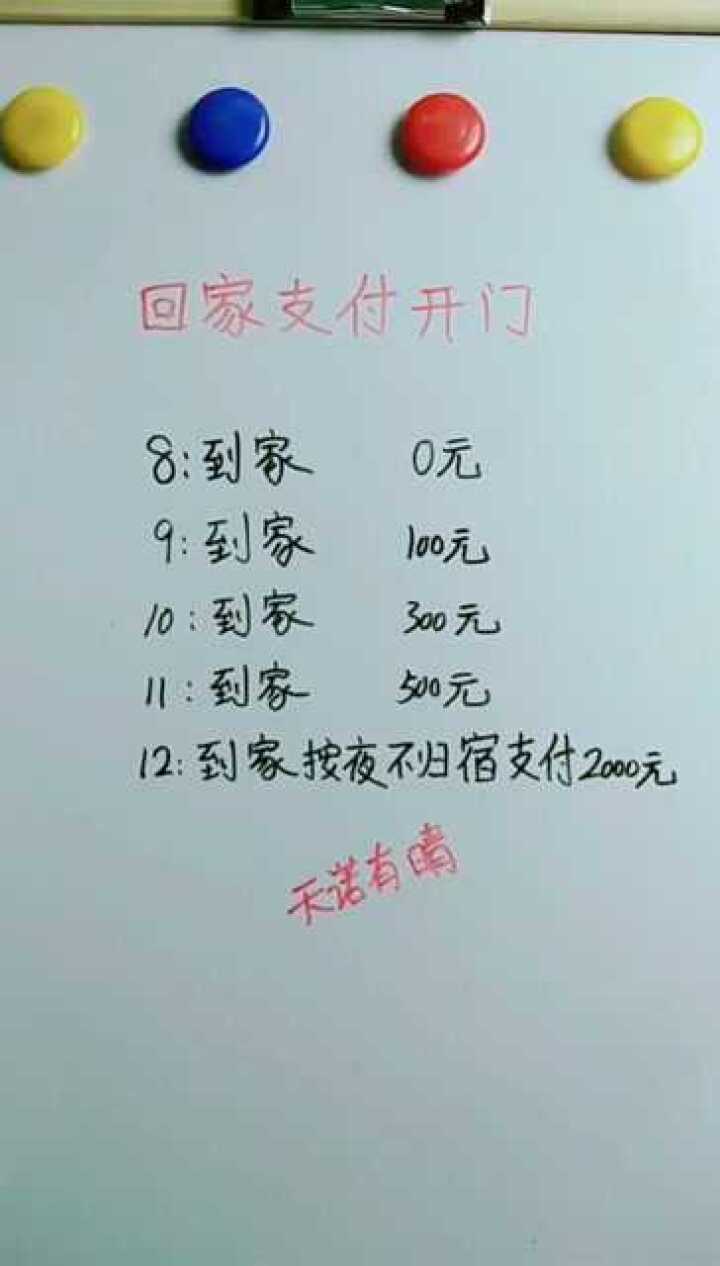 回家支付开门
8:到家 0元
9:到家 100元
10:到家 300元
11:到家 500元
12:到家按夜不归宿支付2000元
天诺有晴